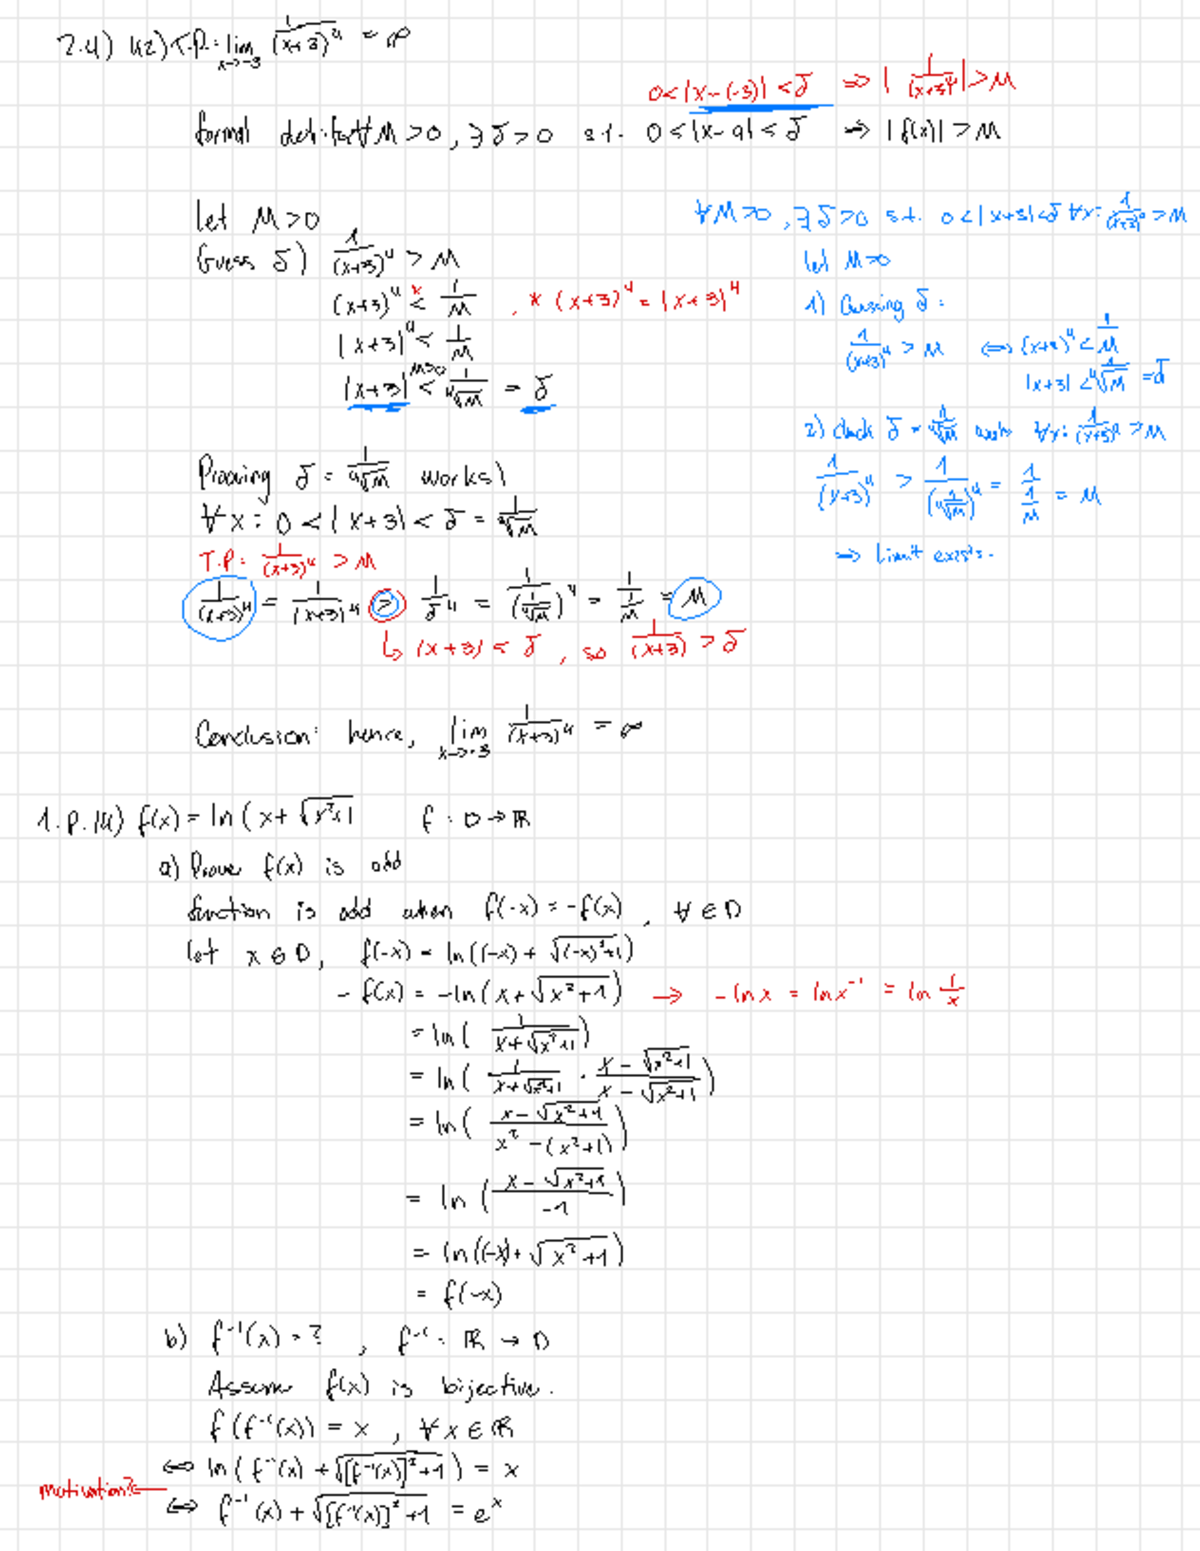 2.4) 42) T.P.: lim x→-3 1/(x+3)⁴ = ∞
0<|x-(-3)|<δ ⇒ |1/(x+3)⁴|>M
formal def: for ∀ M>0, ∃ δ>0 s.t. 0<|x-a|<δ ⇒ |f(x)|>M
let M>0
Guess δ) 1/(x+3)⁴ > M
(x+3)⁴ <* 1/M , * (x+3)⁴ = |x+3|⁴
|x+3|⁴ < 1/M
|x+3| <^(M>0) 1/⁴√M = δ
∀M>0, ∃ δ>0 s.t. 0<|x+3|<δ ∀x: 1/(x+3)⁴ > M
let M>0
1) Guessing δ:
1/(x+3)⁴ > M ⇔ (x+3)⁴ < 1/M
|x+3| < 1/⁴√M = δ
2) check δ = 1/⁴√M works ∀x: 1/(x+3)⁴ > M
1/(x+3)⁴ > 1/(1/⁴√M)⁴ = 1/(1/M) = M
⇒ limit exists.
Prooving δ = 1/⁴√M works)
∀x: 0<|x+3|<δ = 1/⁴√M
T.P: 1/(x+3)⁴ > M
1/(x+3)⁴ = 1/|x+3|⁴ > 1/δ⁴ = 1/(1/⁴√M)⁴ = 1/(1/M) = M
↳ (x+3) < δ , so 1/(x+3) > δ
Conclusion: hence, lim x→-3 1/(x+3)⁴ = ∞
1.P.14) f(x) = ln(x+√x²+1 f: D→ℝ
a) Prove f(x) is odd
function is odd when f(-x) = -f(x) , ∀ ∈ D
let x ∈ D, f(-x) = ln((-x)+√(-x)²+1)
-f(x) = -ln(x+√x²+1) → -lnx = lnx⁻¹ = ln 1/x
= ln( 1/(x+√x²+1) )
= ln( 1/(x+√x²+1) · (x-√x²+1)/(x-√x²+1) )
= ln( (x-√x²+1)/(x²-(x²+1)) )
= ln( (x-√x²+1)/-1 )
= ln((-x)+√x²+1)
= f(-x)
b) f⁻¹(x) = ? , f⁻¹: ℝ → D
Assume f(x) is bijective.
f(f⁻¹(x)) = x , ∀ x ∈ ℝ
⇔ ln(f⁻¹(x) + √[f⁻¹(x)]²+1) = x
motivation?←
⇔ f⁻¹(x) + √[f⁻¹(x)]²+1 = eˣ